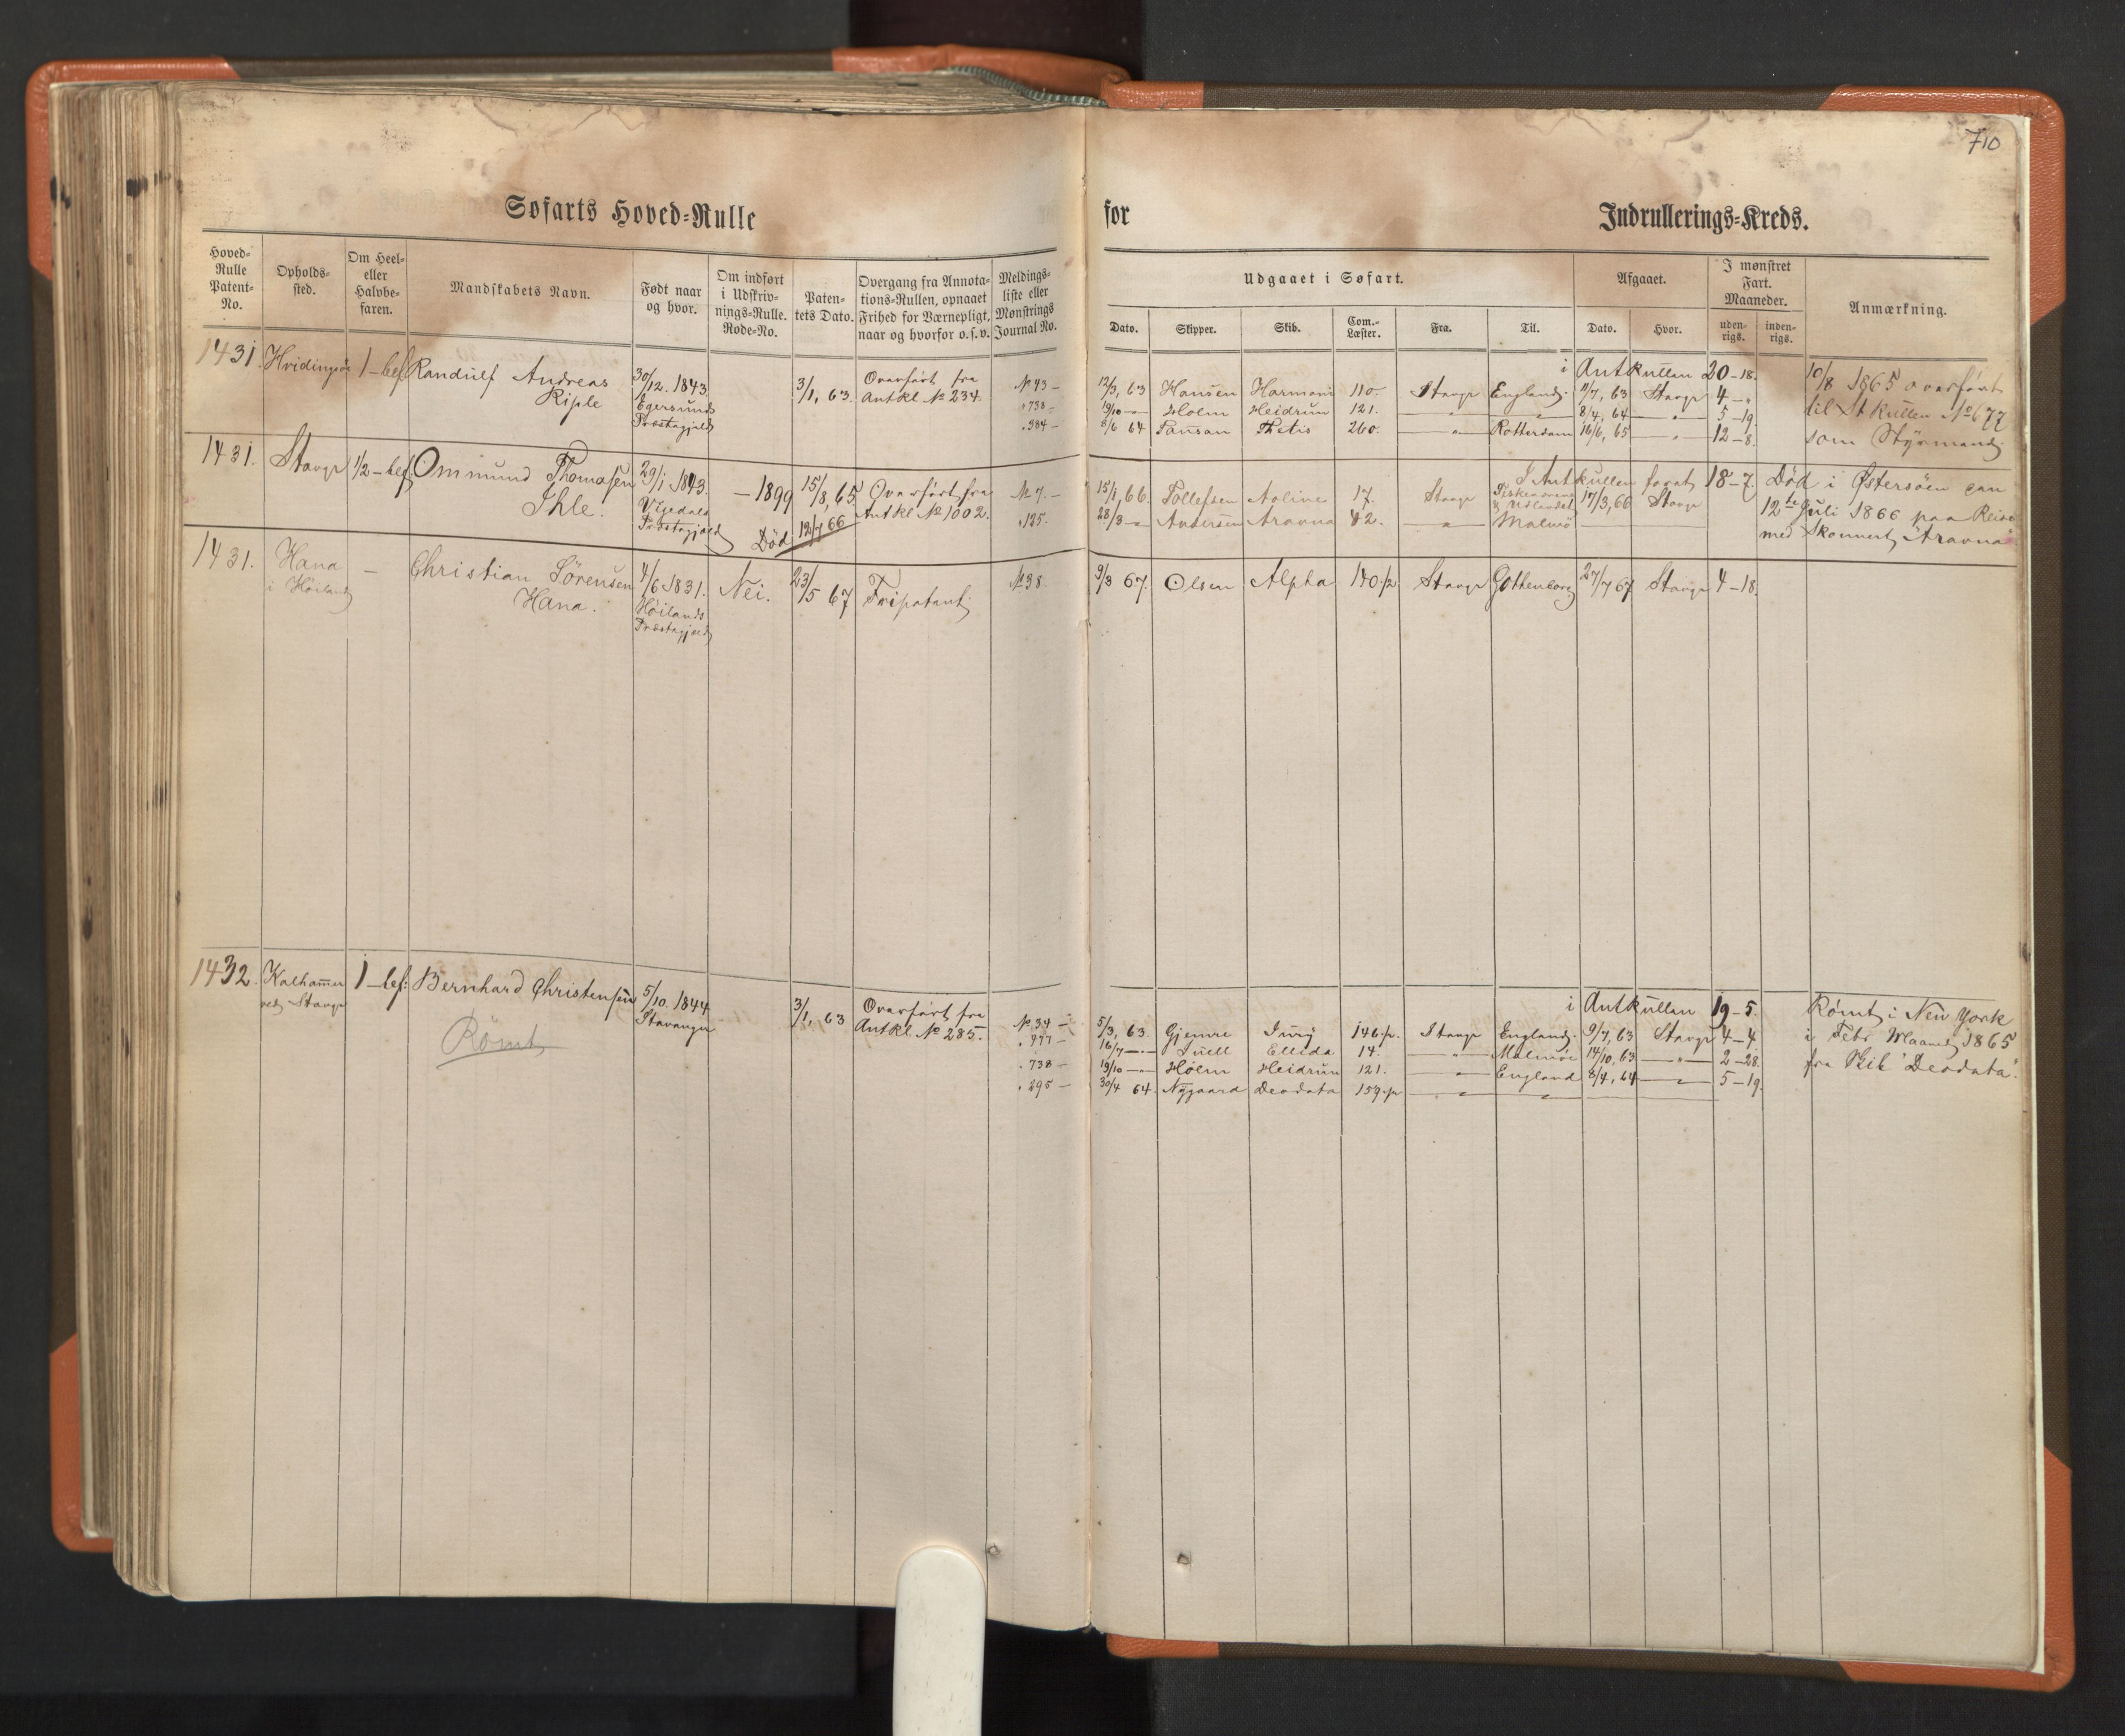 710
Søfarts Hoved-Rulle
for
Indrullerings-Kreds.
Hoved-Rulle Patent-No.
Opholds-sted.
Om Heel- eller Halvbe-faren.
Mandskabets Navn.
Født naar og hvor.
Om indført i Udskriv-nings-Rulle. Rode-No.
Paten-tets Dato.
Overgang fra Annota-tions-Rullen, opnaaet Frihed for Værnepligt, naar og hvorfor o.s.v.
Meldings-liste eller Mønstrings Journal No.
Udgaaet i Søfart.
Afgaaet.
I mønstret Fart. Maaneder.
Anmærkning.
Dato.
Skipper.
Skib.
Com.-Læster.
Fra.
Til.
Dato.
Hvor.
uden-rigs.
inden-rigs.
1431. Hvidingsøe 1-bef. Randulf Andreas Riple
30/12. 1843. Egersunds Præstegjeld
3/1, 63. Overført fra Antkl № 234.
i Antkullen 20-18.
№ 43 - 12/3, 63 Hansen Harmoni 110. Stavgr England. 11/7, 63 Stavgr 4-"
" 738 - 19/10 - Holm Heidrun 121. " " 8/4, 64 " 5-19.
" 384 - 8/6 64 Thetis 260. " Rotterdam 16/6, 65 " 12-8.
10/8 1865 overført
til St kullen № 677
som Styrmand.
1431. Stavgr 1/2-bef. Ommund Thomasen Ihle.
29/1 1843. Præstegjeld
- 1899 15/8, 65 Overført fra Antkl № 1002.
Død 12/7 66
I Antkullen forat 18-7.
№ 7. - 15/1, 66. Tollefsen Aoline 17. Stavgr 17/3, 66 Stavgr
" 125. 28/3 - Andersen Aravna 42. " Malmø
Død i Østersøen den
12te Juli 1866 paa Reise
med Skonnert Aravna
1431. Hana i Høiland - Christian Sørensen Hana.
4/6 1831. Høilands Præstegjeld
Nei. 23/5 67 Fripatent
№ 38. 9/3 67. Olsen Alpha 140.1/2 Stavgr Gothenborg 27/7 67 Stavgr 4-18.
1432. Kalhammer ved Stavgr 1-bef: Bernhard Christensen
Rømt
5/10. 1844 Stavanger
3/1, 63 Overført fra Antkl № 285.
i Antkullen 19-5.
№ 34 - 5/3, 63 Gjemre 146.p. Stavgr England. 9/7, 63 Stavgr 4-4
" 477 - 16/7 - Ellida 14. " Malmøe 14/10, 63 " 2-28.
" 738 - 19/10 - Holm Heidrun 121. " England 8/4, 64 " 5-19.
" 295 - 30/4 64. Nygaard Deodata 159.p " "
Rømt i New York
i Febr Maaned 1865
fra Skib "Deodata".